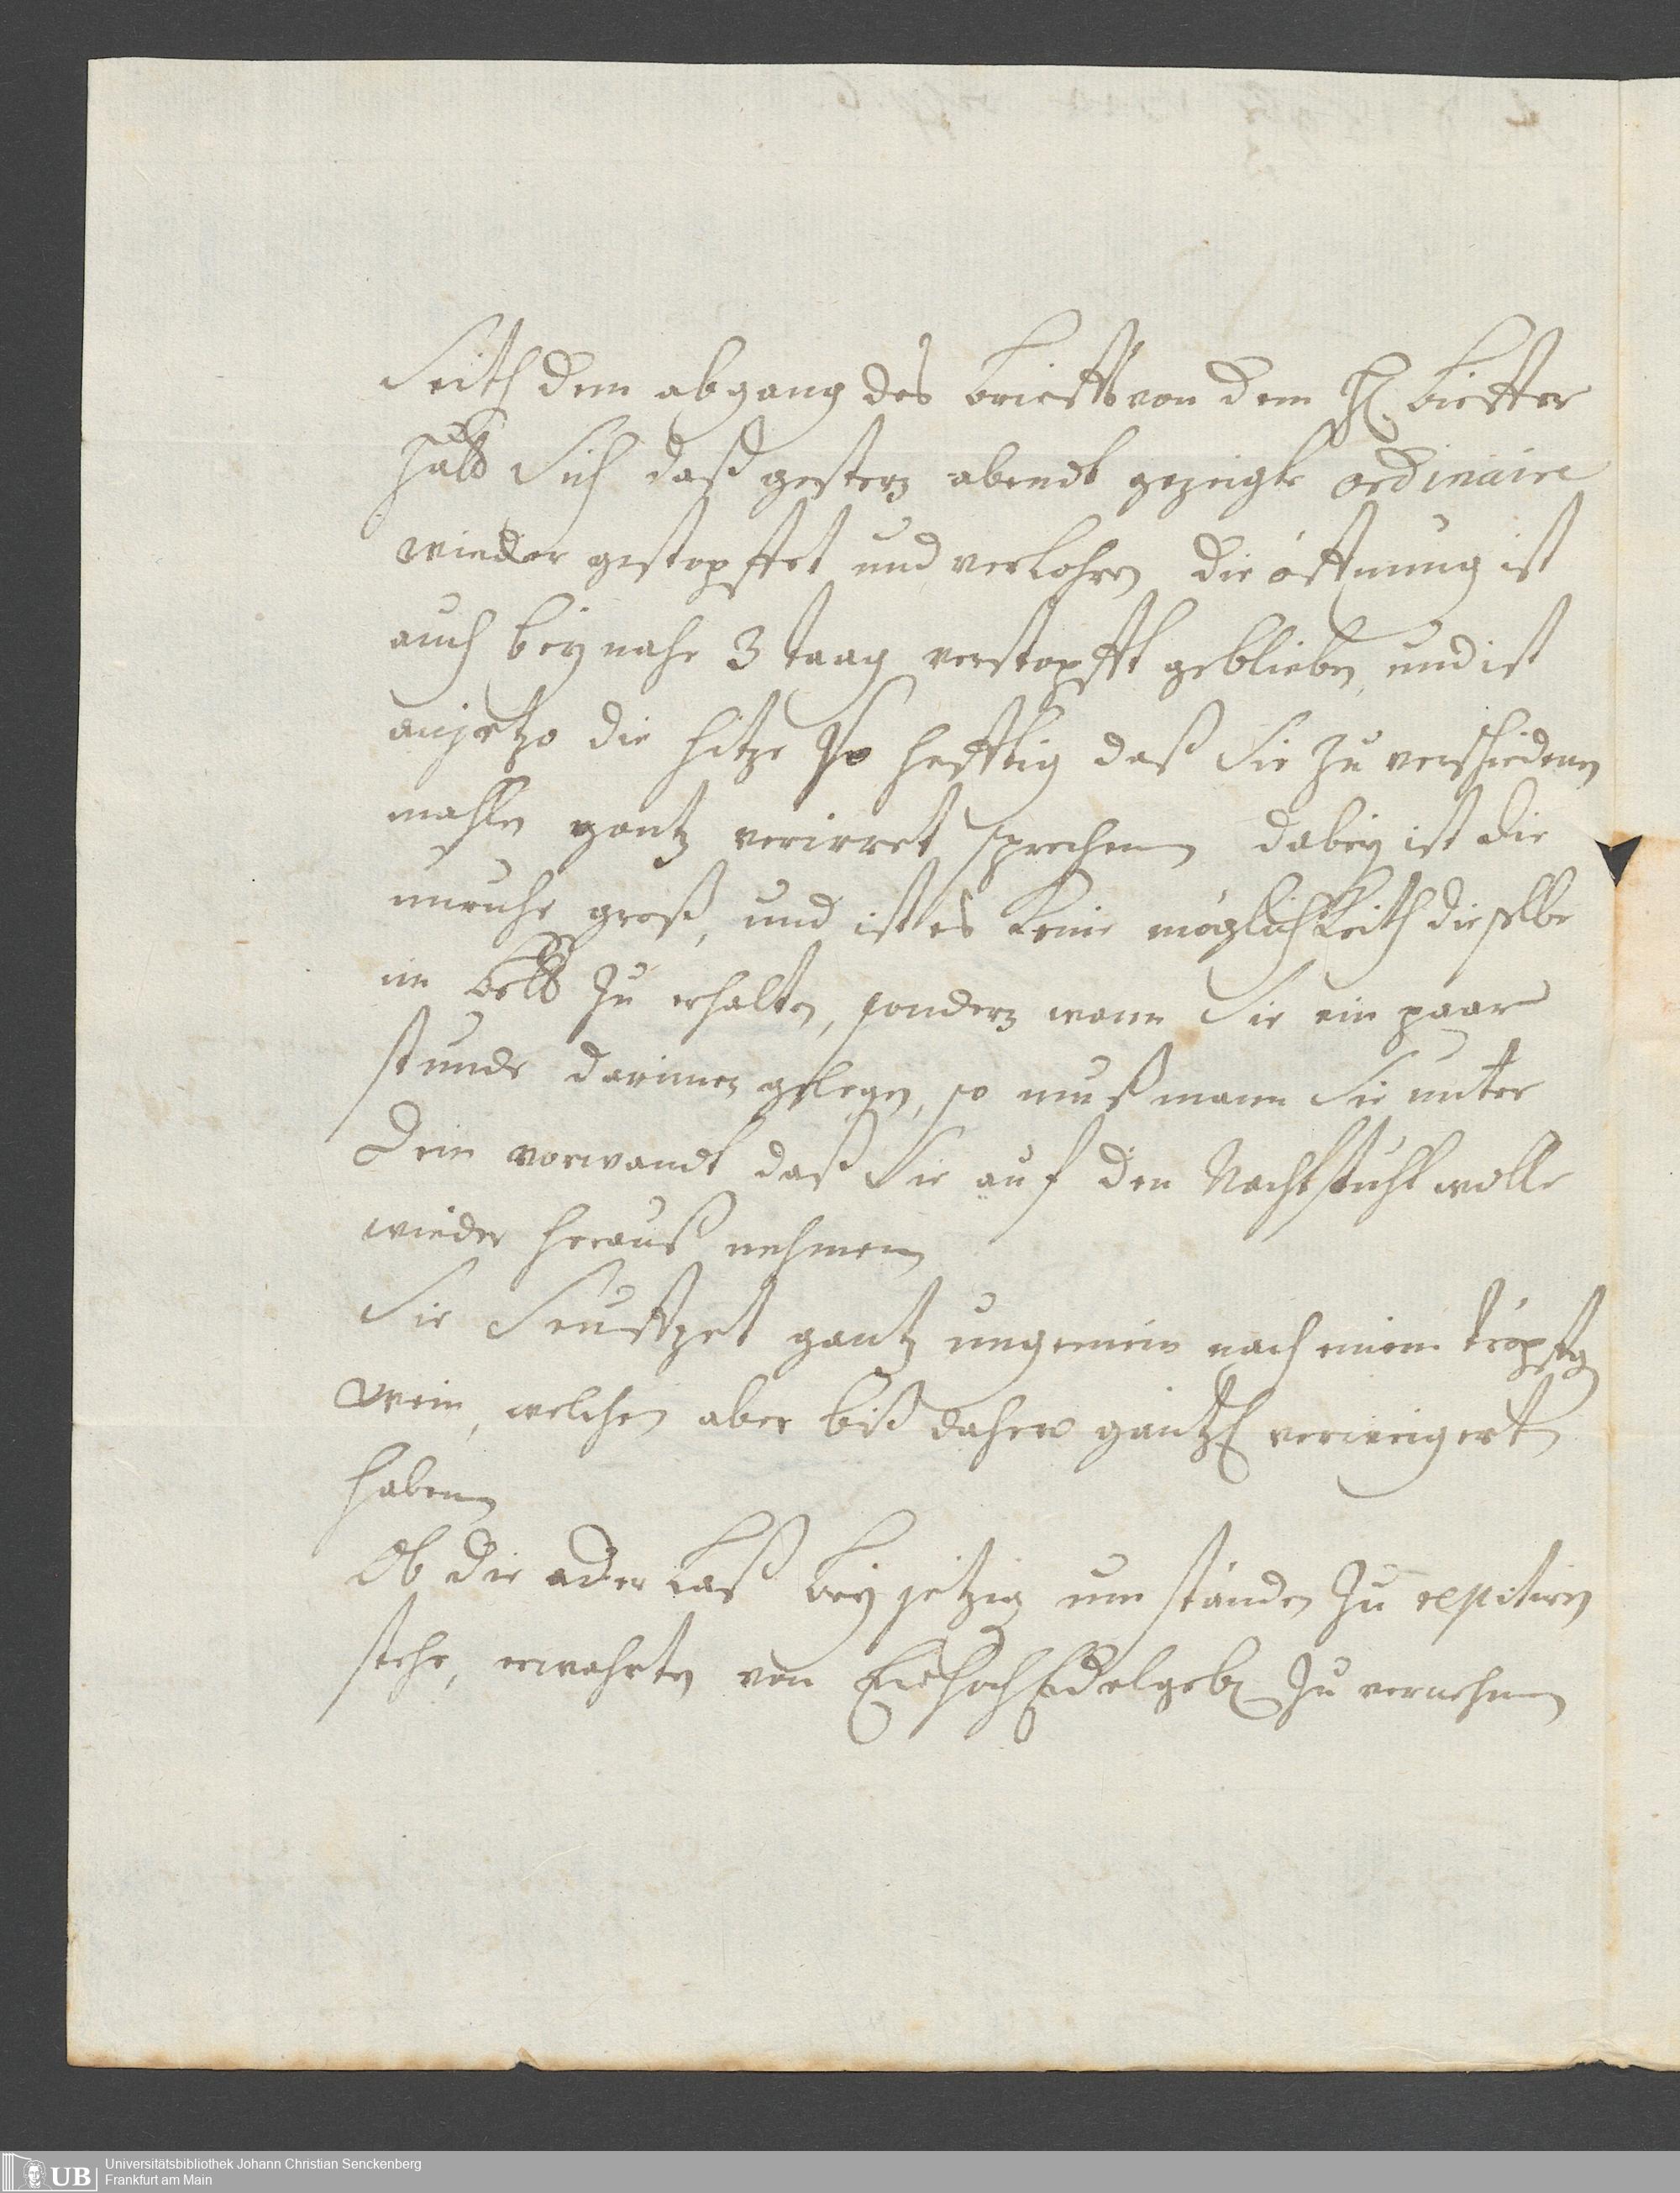 Seith dem abgang des brieffs von dem H. Kieffer
hatt sich daß gestern abendt gezeigte ordinaire
wieder gestopffet und verlohren die öffnung ist
auch bey nahe 3 taag verstopfft geblieben, und ist
anjetzo die hitze so hefftig daß Sie zu verschiedenen
mahlen gantz verirret sprechen dabey ist die
unruhe groß, und ist es keine möglichkeith dieselbe
im bett zu erhalten, sondern wann Sie ein paar
stunde darinnen gelegen, so muß mann Sie unter
dem vorwandt daß Sie auf den Nachtstuhl wolle
wieder herauß nehmen
Sie Seuffzet gantz ungemein nach einem tröpffgen
wein, welchen aber biß daher gäntzl verweigert
haben
Ob die aderlaß bey jetzig umständen zu repitiren
stehe, erwahrten von Ew HochEdelgeb zu vernehmen
UB
Universitätsbibliothek Johann Christian Senckenberg
Frankfurt am Main